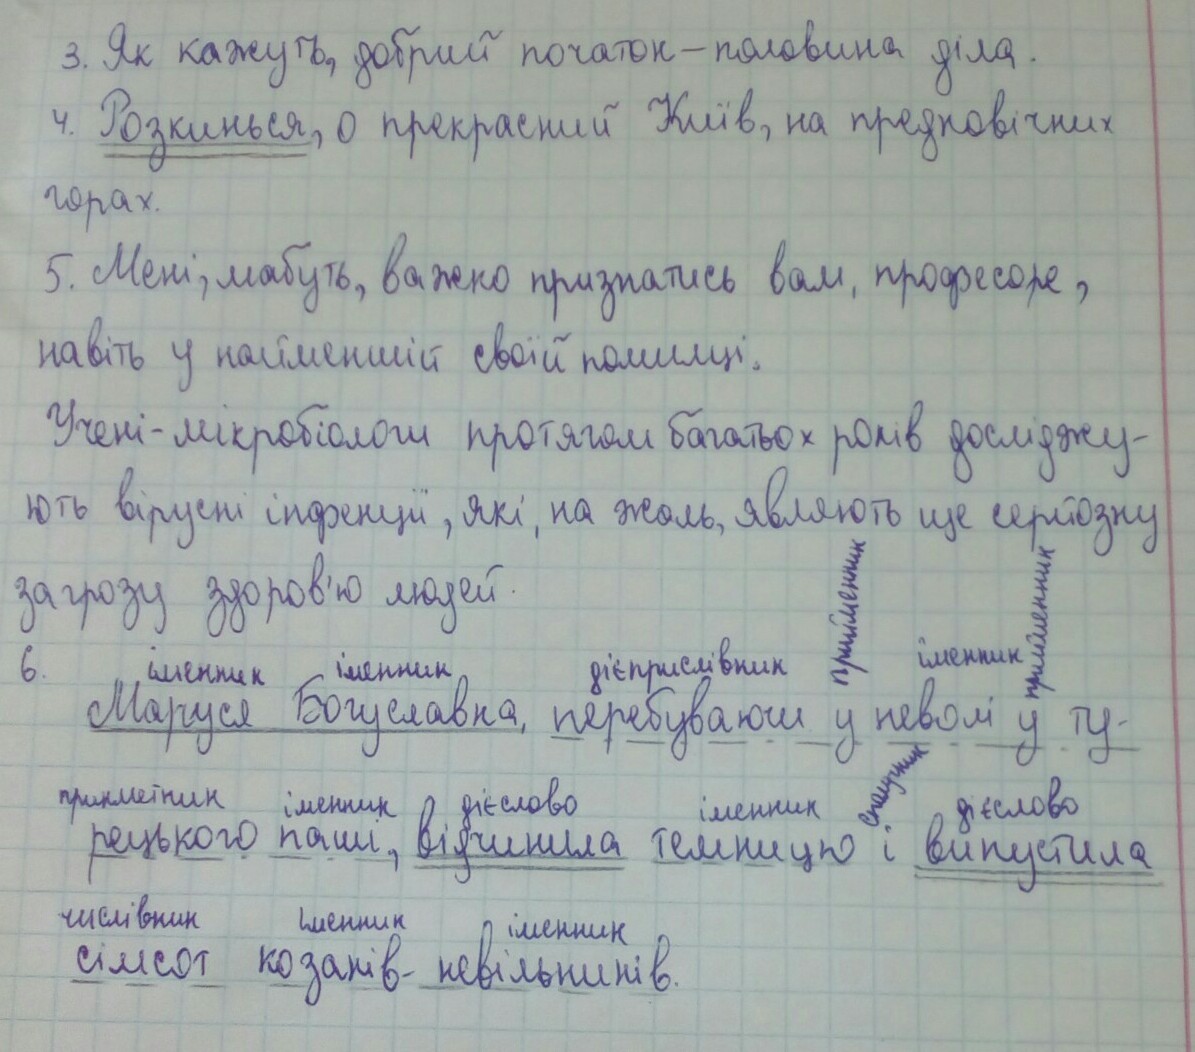 3. Як кажуть, добрий початок – половина діла.
4. Розкинься, о прекрасний Київ, на предковічних
горах.
5. Мені, мабуть, важко признатись вам, професоре,
навіть у найменшій своїй помилці.
Учені-мікробіологи протягом багатьох років досліджу-
ють вірусні інфекції, які, на жаль, являють ще серйозну
загрозу здоров'ю людей.
6. іменник іменник дієприслівник прийменник іменник прийменник
Маруся Богуславка, перебуваючи у неволі у ту-
прикметник іменник дієслово іменник сполучник дієслово
рецького паші, відчинила темницю і випустила
числівник іменник іменник
сімсот козаків-невільників.